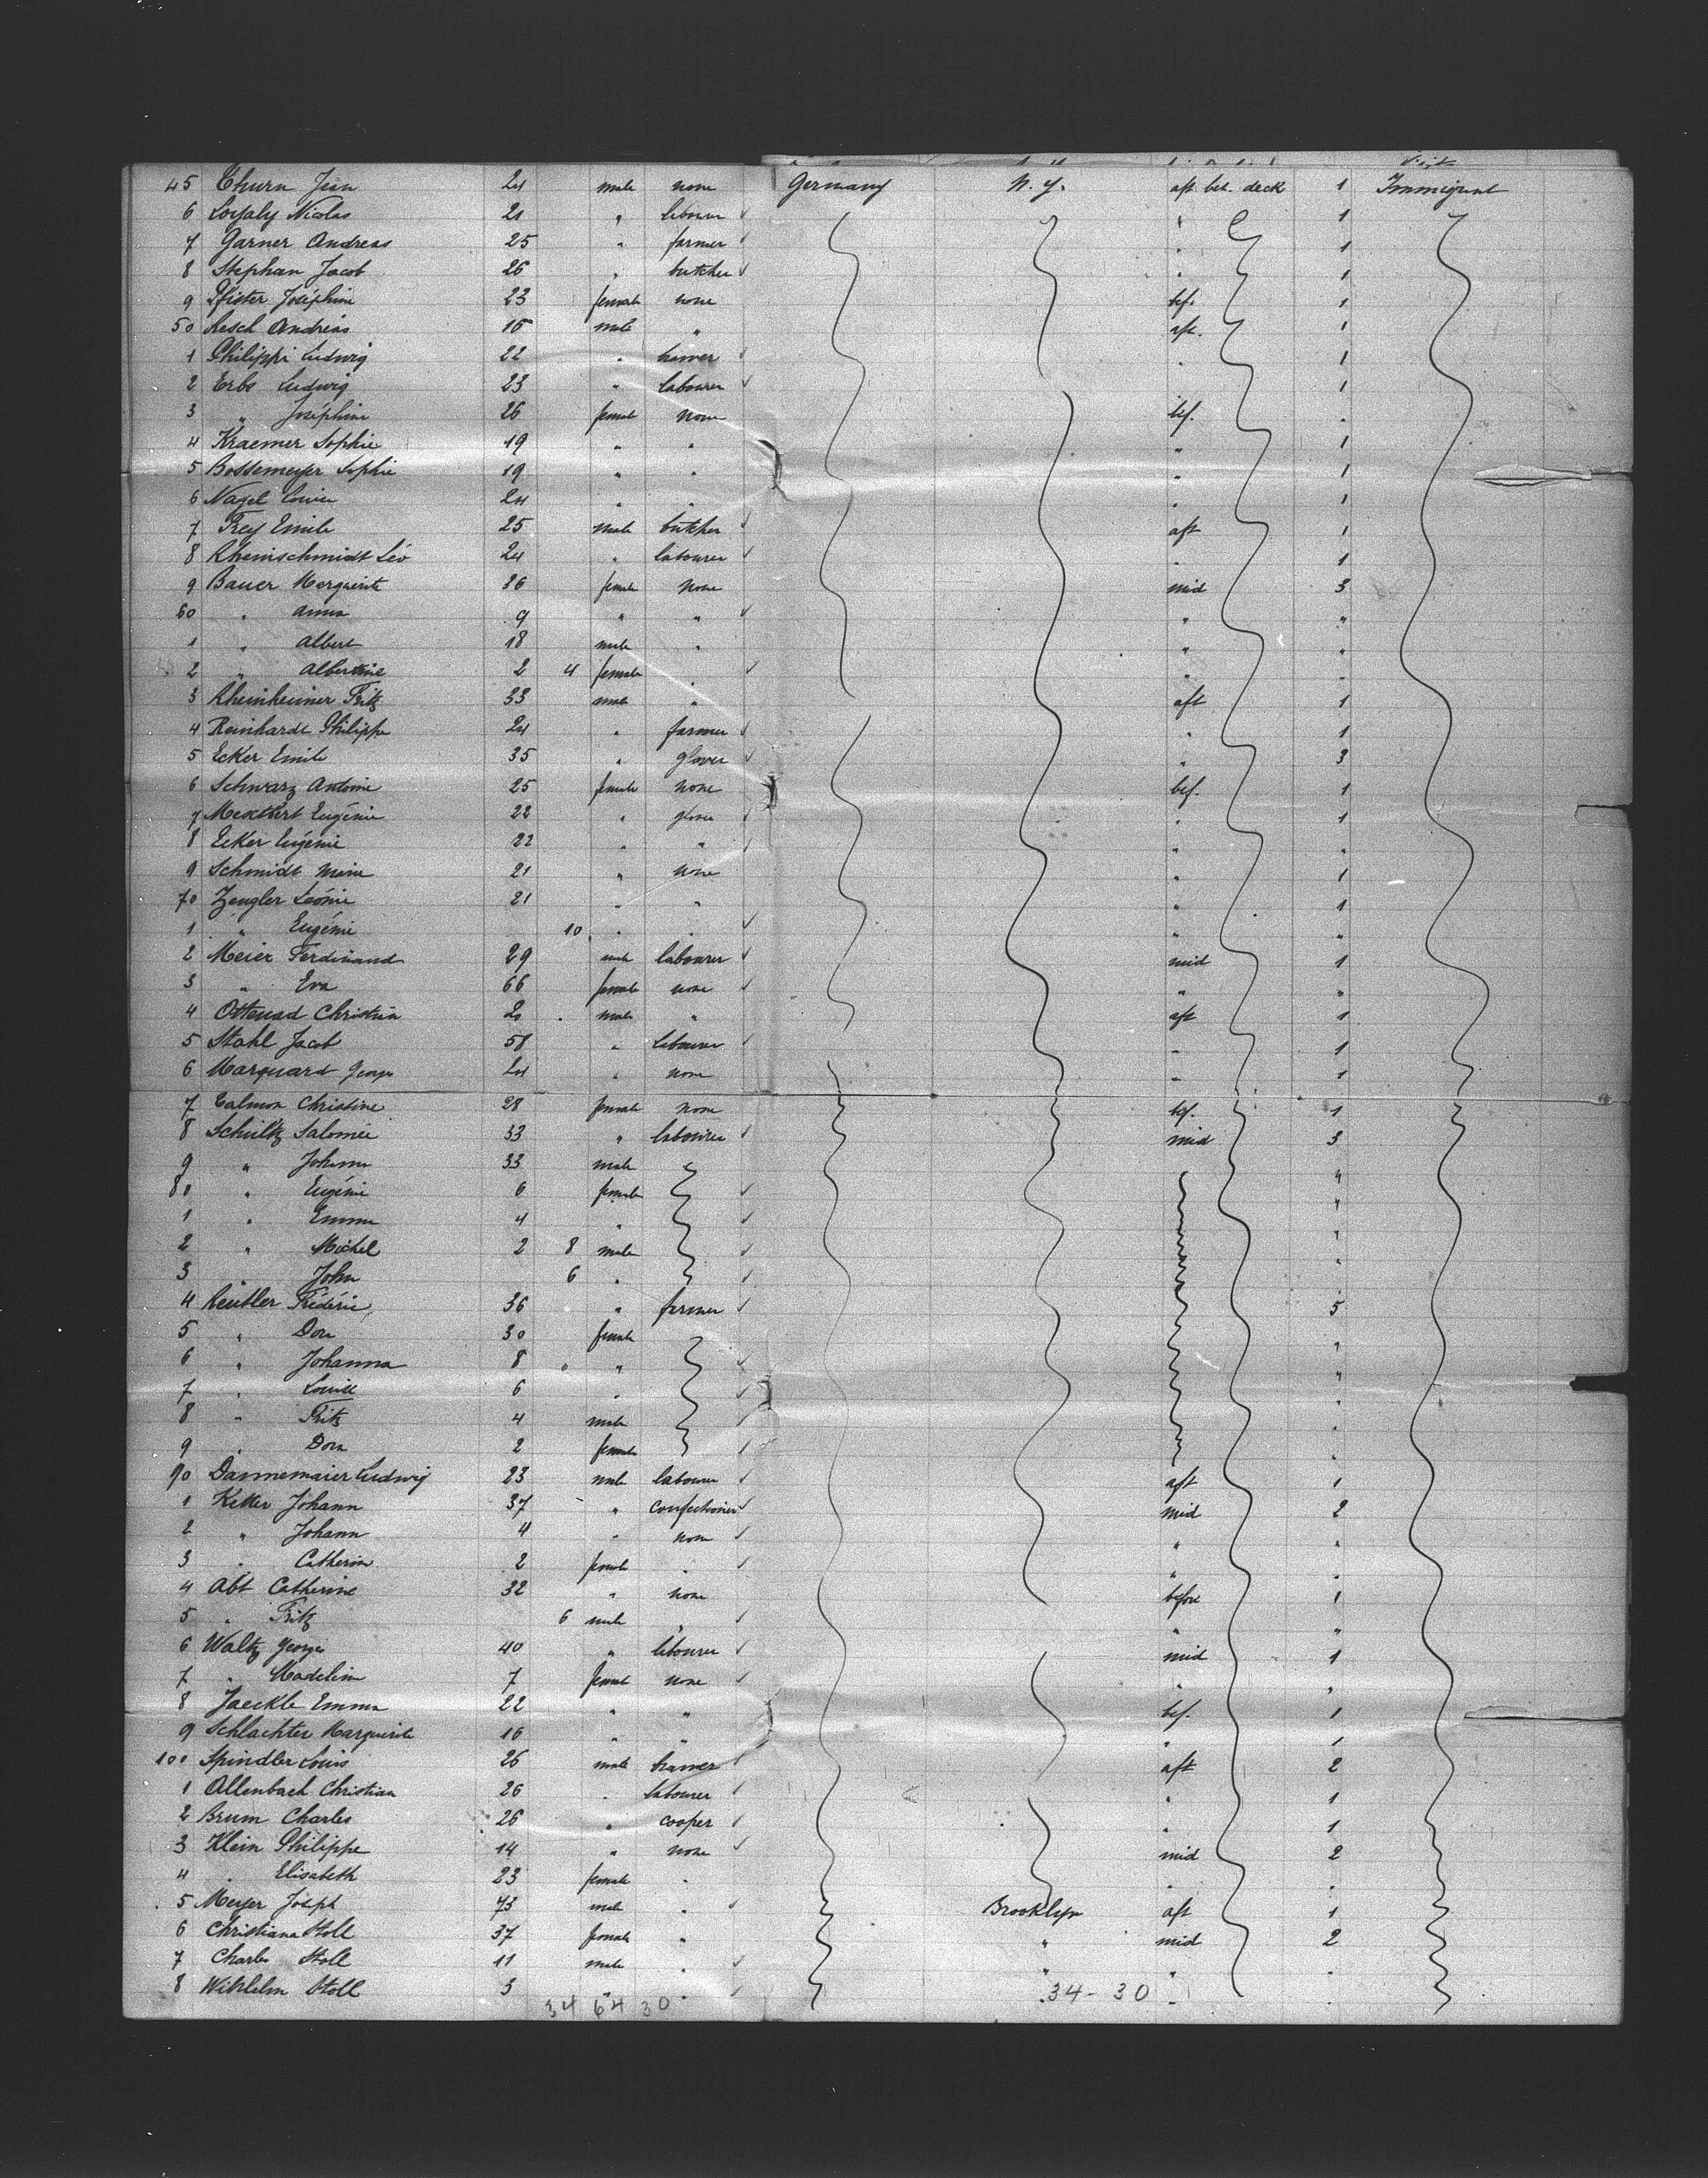 45 Churn Jean 24 male none Germany N. Y. aft bet. deck 1 Immigrant
6 Loyaly Nicolas 21 " labourer " 1
7 Garner Andreas 25 " farmer " 1
8 Stephan Jacob 26 " butcher " 1
9 Pfister Joséphine 23 female none bef. 1
50 Resch Andréas 15 male " aft. 1
1 Philippi Ludwig 22 " " 1
2 Erbs Ludwig 23 " labourer 1
3 " Joséphine 26 female none bef. "
4 Kraemer Sophie 19 " " " 1
5 Bossemeyer Sophie 19 " " " 1
6 Nagel Louise 24 " " " 1
7 Frey Emile 25 male butcher aft 1
8 Rheinschmidt Léo 24 " labourer " 1
9 Bauer Marguerite 36 female none mid 3
60 " Anna 9 " " " "
1 " Albert 18 male " " "
2 " Albertine 2 4 female " " "
3 Rheinheimer Fritz 33 male " aft 1
4 Reinhardt Philippe 24 " farmer " 1
5 Ecker Emile 35 " glover " 3
6 Schwarz Antonie 25 female none bef. 1
7 Eugénie 22 " glover " 1
8 Ecker Eugénie 22 " " " "
9 Schmidt Marie 21 " none " 1
70 Zengler Léonie 21 " " " 1
1 " Eugénie 10 " " " "
2 Meier Ferdinand 29 male labourer mid 1
3 " Eva 66 female none " "
4 Ottenad Christian 21 male " aft 1
5 Stahl Jacob 58 " labourer " 1
6 Marquard George 24 " none " 1
7 Calmon Christine 28 female none bef. 1
8 Schultz Salomée 33 " labourer mid 3
9 " Johann 33 male "
80 " Eugénie 6 female "
1 " Emma 4 " "
2 " Michel 2 8 male "
3 " John 6 " "
4 Reutler Frédéric 36 " farmer 5
5 " Dora 30 female "
6 " Johanna 8 " "
7 " Louise 6 " "
8 " Fritz 4 male "
9 " Dora 2 female "
90 Dannemaier Ludwig 23 male labourer aft 1
1 Keller Johann 37 " confectioner mid 2
2 " Johann 4 " none " "
3 " Catherine 2 female " " "
4 Abt Catherine 32 " none before 1
5 " Fritz 6 male " " "
6 Waltz George 40 " labourer mid 1
7 " Madeline 7 female none " "
8 Jaeckle Emma 22 " " bef. 1
9 Schlachter Marguerite 16 " " " 1
100 Spindler Louis 26 male aft 2
1 Allenbach Christian 26 " labourer " 1
2 Brum Charles 26 " cooper " 1
3 Klein Philippe 14 " none mid 2
4 " Elisabeth 23 female " " "
5 Meyer Joseph 73 male " Brooklyn aft 1
6 Christiana Stoll 37 female " " mid 2
7 Charles Stoll 11 male " " " "
8 Wilhelm Stoll 3 " " " "
34 64 30 34-30